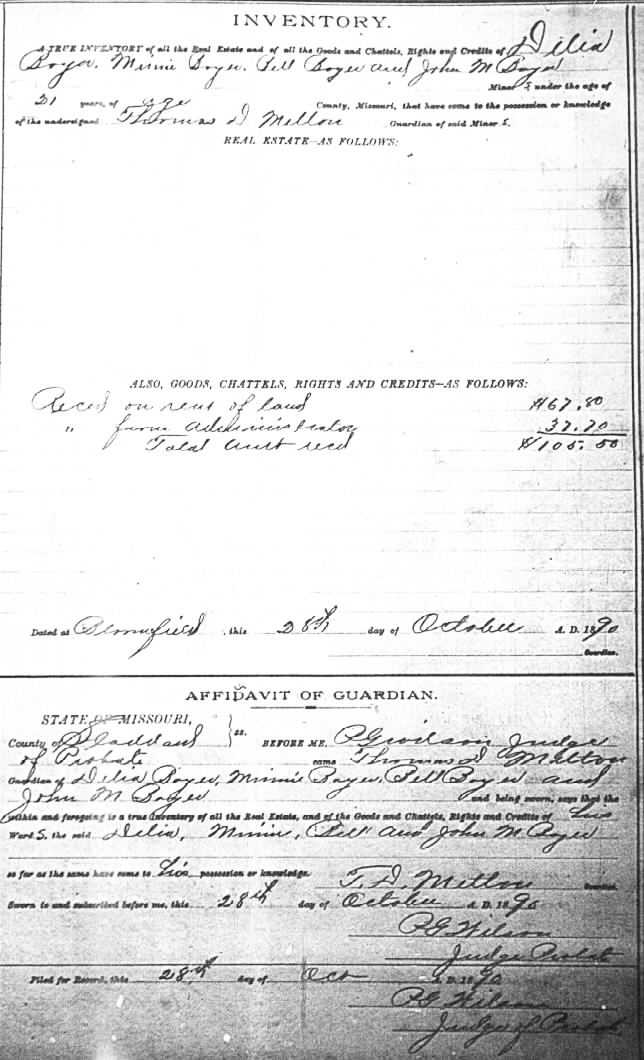 INVENTORY.
A TRUE INVENTORY of all the Real Estate and of all the Goods and Chattels, Rights and Credits of Delia
Boyer. Minnie Boyer. Pell Boyer and John M Boyer
Minor s under the age of
21 years, of age County, Missouri, that have come to the possession or knowledge
of the undersigned Thomas D Melton Guardian of said Minor s.
REAL ESTATE—AS FOLLOWS:
ALSO, GOODS, CHATTELS, RIGHTS AND CREDITS—AS FOLLOWS:
Reced on rent of land $67.80
" from Administrator 37.70
Total amt recd $105.50
Dated at Bloomfield, this 28th day of October A. D. 1890
Guardian.
AFFIDAVIT OF GUARDIAN.
STATE OF MISSOURI,
County of Stoddard ss. BEFORE ME, Judge
of Probate came Thomas D Melton
Guardian of Delia Boyer, Minnie Boyer, Pell Boyer and
John M Boyer and being sworn, says that the
within and foregoing is a true Inventory of all the Real Estate, and of the Goods and Chattels, Rights and Credits of his
Ward S, the said Delia, Minnie, Pell and John M Boyer
so far as the same have come to his possession or knowledge.
T. D. Melton Guardian.
Sworn to and subscribed before me, this 28th day of October A. D. 1890
P G Wilson
Judge Probate
Filed for Record, this 28th day of Oct A. D. 1890
P G Wilson
Judge of Probate